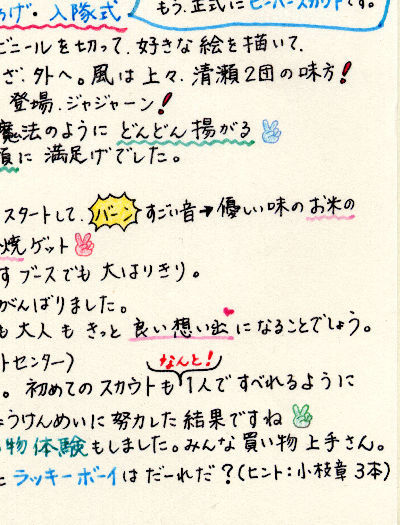 あげ・入隊式
もう、正式にビーバースカウトです。
ビニールを切って、好きな絵を描いて、
ざ、外へ。風は上々、清瀬2団の味方!
登場、ジャジャーン!
魔法のように どんどん揚がる
に 満足げでした。
スタートして、バーン すごい音→優しい味のお米の
焼ゲット
すブースでも 大はりきり。
がんばりました。
も 大人 も きっと 良い想い出になることでしょう。
トセンター)
なんと!
。初めてのスカウトも 1人で すべれるように
ょうけんめいに 努力した 結果ですね
物体験もしました。みんな 買い物 上手さん。
ラッキーボーイは だーれだ?(ヒント:小枝章 3本)